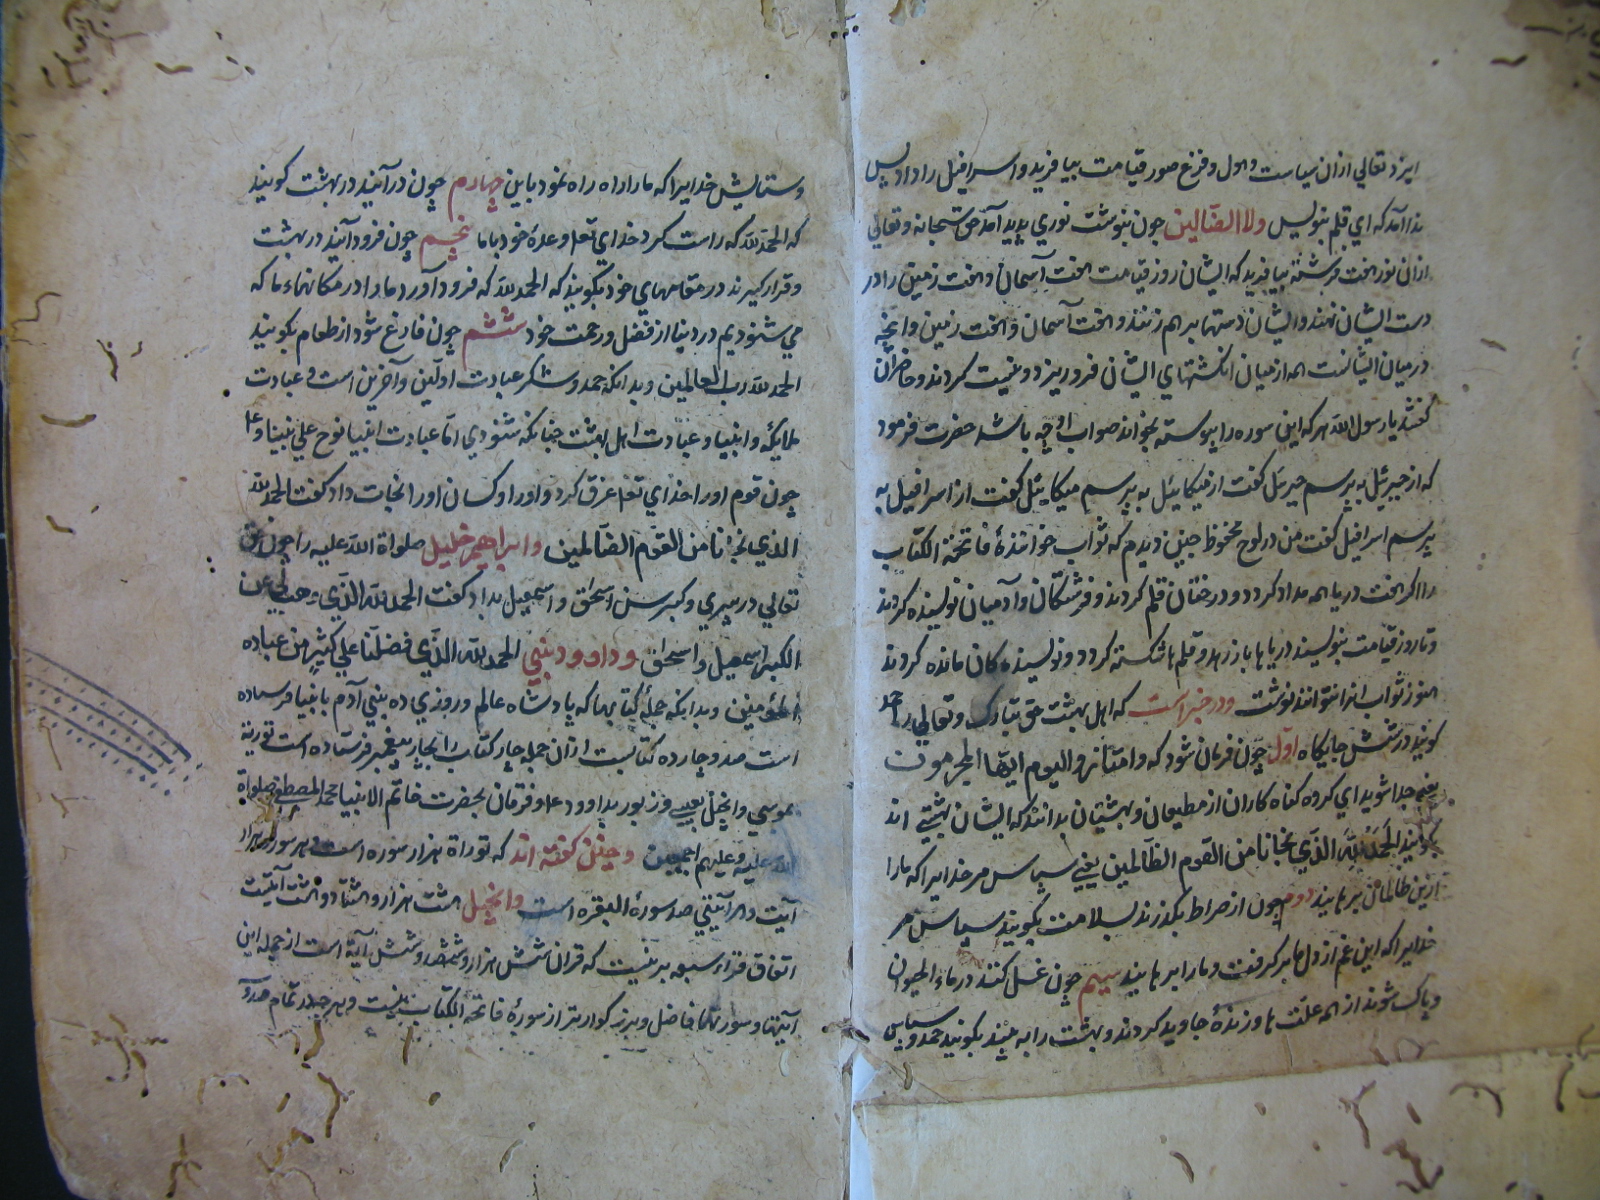 ایزد تعالی ازان سیاست و هول و فزع صور قیامت بیافرید و اسرافیل را داد پس
ندا آمد که ای قلم بنویس ولا الضالین چون بنوشت نوری پدید آمد حق سبحانه و تعالی
ازان نور هفت فرشته بیافرید که ایشان روز قیامت هفت آسمان و هفت زمین را در
دست ایشان نهند و ایشان دستها بر هم زنند و هفت آسمان و هفت زمین و انچه
در میان ایشانست همه از میان انگشتهای ایشان فرو ریزد و نیست کردند و حاضران
گفتند یا رسول الله هر که این سوره را پیوسته بخواند صواب او چه باشد حضرت فرمود
که از جبرئیل به پرسم جبرئیل گفت از میکائیل به پرسم میکائیل گفت از اسرافیل به
پرسم اسرافیل گفت من در لوح محفوظ چنین دیدم که ثواب خوانندهٔ فاتحة الکتاب
را اگر هفت دریا همه مداد کردد و درختان قلم کردند و فرشتگان و آدمیان نویسنده کردند
و تا روز قیامت بنویسند دریاها باز رهد و قلم ها شکسته کردد و نویسنده کان مانده کردند
هنوز ثواب انرا نتوانند نوشت و در خبر است که اهل بهشت حق تبارک و تعالی را حمد
کویند در شش جایکاه اوّل چون فرمان شود که وامتازوا الیوم ایها المجرمون
یعنی جدا شوید ای کروه کناه کاران از مطیعان و بهشتیان بدانند که ایشان بهشتی اند
بکویند الحمد لله الذی نجانا من القوم الظالمین یعنی سپاس مر خدایرا که مارا
ازین ظالمان برهانید دوم چون از صراط بکذرند بسلامت بکویند سپاس مر
خدایرا که این غم از دل ما بر کرفت و مارا برهانید سیم چون غسل کنند در ماء الحیوان
و پاک شوند از همه علت ها و زندهٔ جاوید کردند و بهشت را به بینند بکویند حمد و سپاس
و ستایش خدایرا که مارا راه نمود باین چهارم چون در آیند در بهشت کویند
که الحمد لله که راست کرد خدای تعلی وعدهٔ خود باما پنجم چون فرود آیند در بهشت
و قرار کیرند در مقامهای خود بکویند که الحمد لله که فرود آورد مارا در مکانهاء ما که
می شنودیم در دنیا از فضل و رحمت خود ششم چون فارغ شود از طعام بکویند
الحمد لله رب العالمین و بدانکه حمد و شکر عبادت اولین و آخرین است و عبادت
ملایکه و انبیا و عبادت اهل بهشت چنانکه شنودی امّا عبادت انبیا نوح علی نبینا و علیه
چون قوم او را خدای تعلی غرق کرد و او را و کسان او را نجات داد کفت الحمد لله
الذی نجّانا من القوم الظّالمین و ابراهیم خلیل صلواة الله علیه را چون حق
تعالی در پیری و کبر سن اسحق و اسمعیل بداد کفت الحمد لله الذی وهب لی علی
الکبر اسمعیل و اسحاق و داوود نبی الحمد لله الذی فضلنا علی کثیر من عباده
المؤمنین و بدانکه جملهٔ کتابها که پادشاه عالم و روزی ده بنی آدم بانبیا فرستاده
است صد و چارده کتابست ازان جمله چار کتاب را بچار پیغمبر فرستاده است توریة
بموسی و انجیل بعیسی و زبور بداوود علی و فرقان بحضرت خاتم الانبیا محمد المصطفی صلواة
الله علیه و علیهم اجمعین و چنین کفته اند که توراة هزار سوره است و هر سوره هزار
آیت و هر آیتی صد سورهٔ البقره است و انجیل هشت هزار و هشتاد و هشت آیتست
اتفاق قراء سبعه بر نیست که قران شش هزار و ششصد و شش آیة است از جمله این
آیتها و سورتها فاضل و بزرکوارتر از سورهٔ فاتحة الکتاب نیست و هر چند تمام